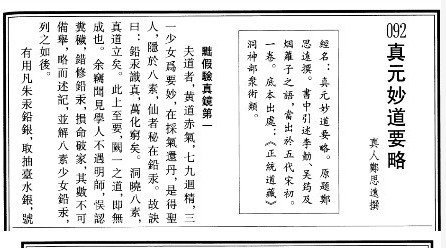 092
真元妙道要略
真人鄭思遠撰
經名：真元妙道要略。原題鄭
思遠撰。書中引述李勣、吳筠及
烟蘿子之語，當出於五代宋初。
一卷。底本出處：《正統道藏》
洞神部衆術類。
黜假驗真鏡第一
夫道者，黄道赤氣，七九迴精，三
一少女爲要妙，在採氣還丹，是得聖
人，隱於八素，仙者秘在鉛汞。故訣
曰：鉛汞識真，萬化窮矣。洞曉八素，
真道立矣。此上至要，闕一之道，即無
成也。余竊聞見學人不遇明師，誤認
糞穢，錯修鉛汞，損命破家，其數不可
備舉，略而述記，並解八素少女鉛汞，
列之如後。
有用凡朱汞鉛銀，取抽臺水銀，號